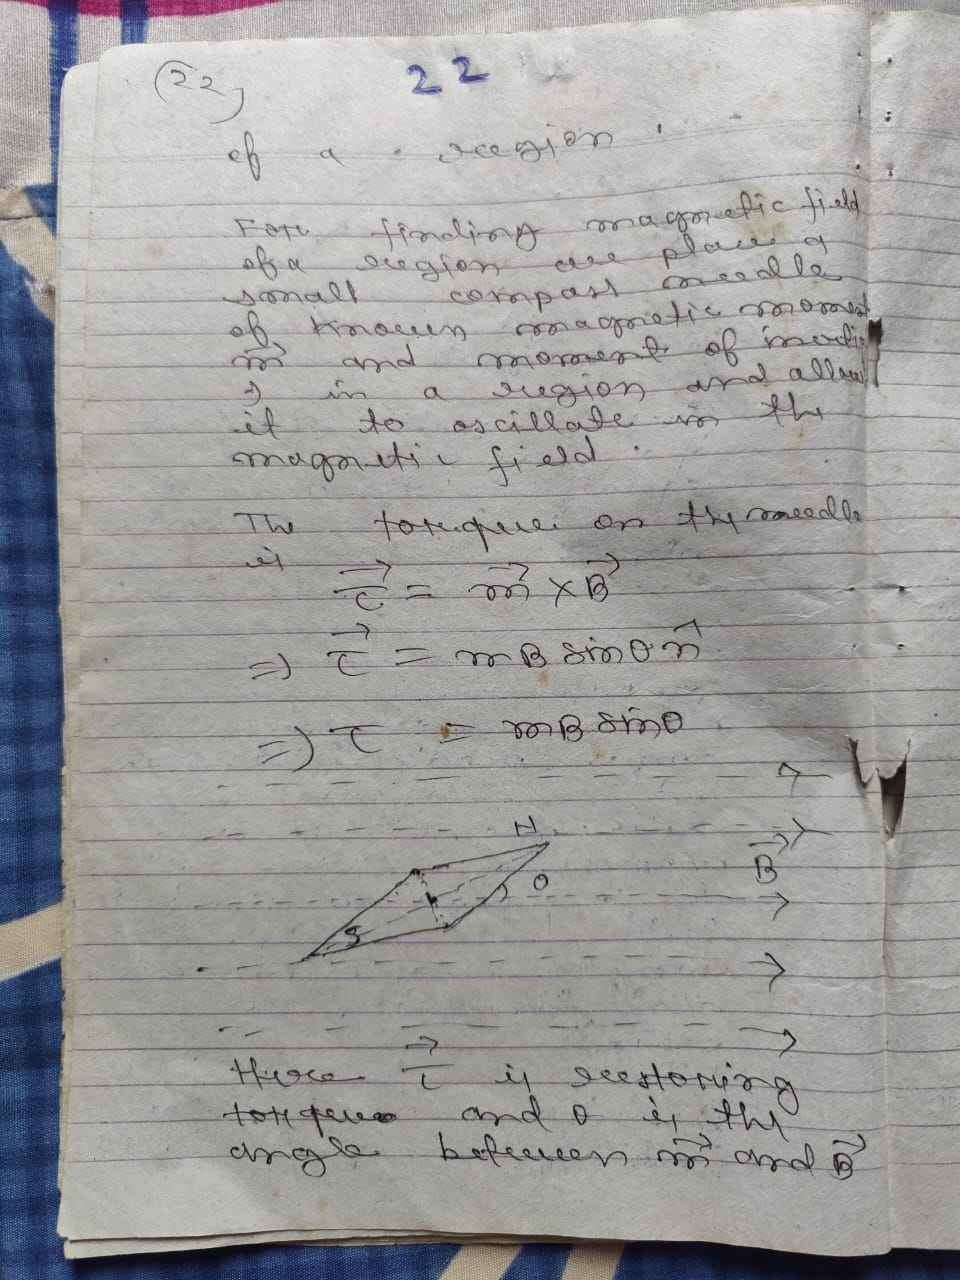 (22)
22
of a region
For finding magnetic field
of a region are place a
small compass needle
of known magnetic moment
m⃗ and moment of inertia
I in a region and allow
it to oscillate in the
magnetic field.
The torque on the needle
is
τ⃗ = m⃗ × B⃗
=) τ⃗ = mB sinθ n⃗
=) τ = mB sinθ
N
B⃗
θ
S
Here τ⃗ is restoring
torque and θ is the
angle between m⃗ and B⃗